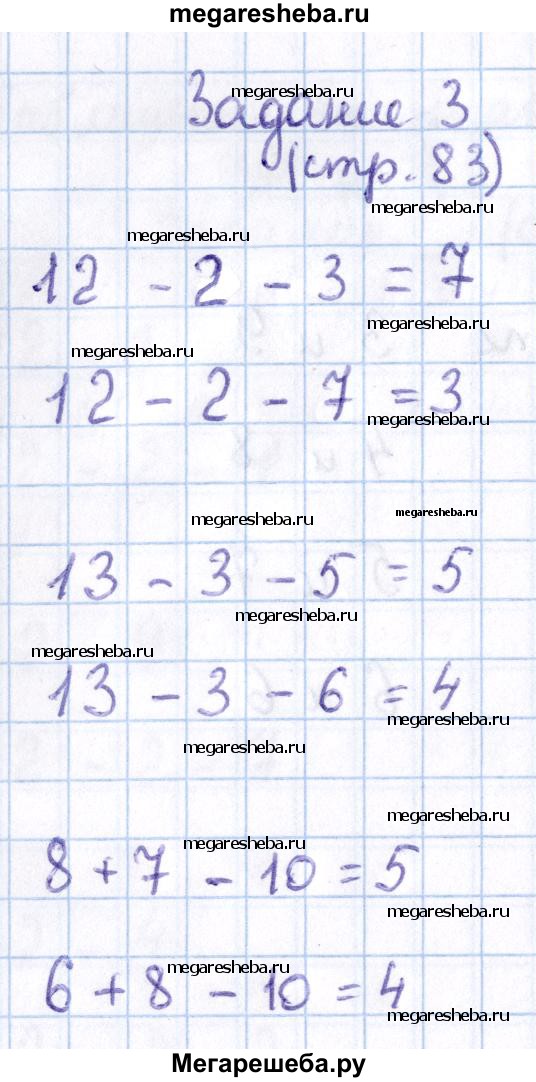 megaresheba.ru
megaresheba.ru
Задание 3
(стр. 83)
megaresheba.ru
megaresheba.ru
12 - 2 - 3 = 7
megaresheba.ru
megaresheba.ru
12 - 2 - 7 = 3
megaresheba.ru
megaresheba.ru
megaresheba.ru
13 - 3 - 5 = 5
megaresheba.ru
megaresheba.ru
13 - 3 - 6 = 4
megaresheba.ru
megaresheba.ru
megaresheba.ru
megaresheba.ru
8 + 7 - 10 = 5
megaresheba.ru
megaresheba.ru
6 + 8 - 10 = 4
megaresheba.ru
Мегарешеба.ру